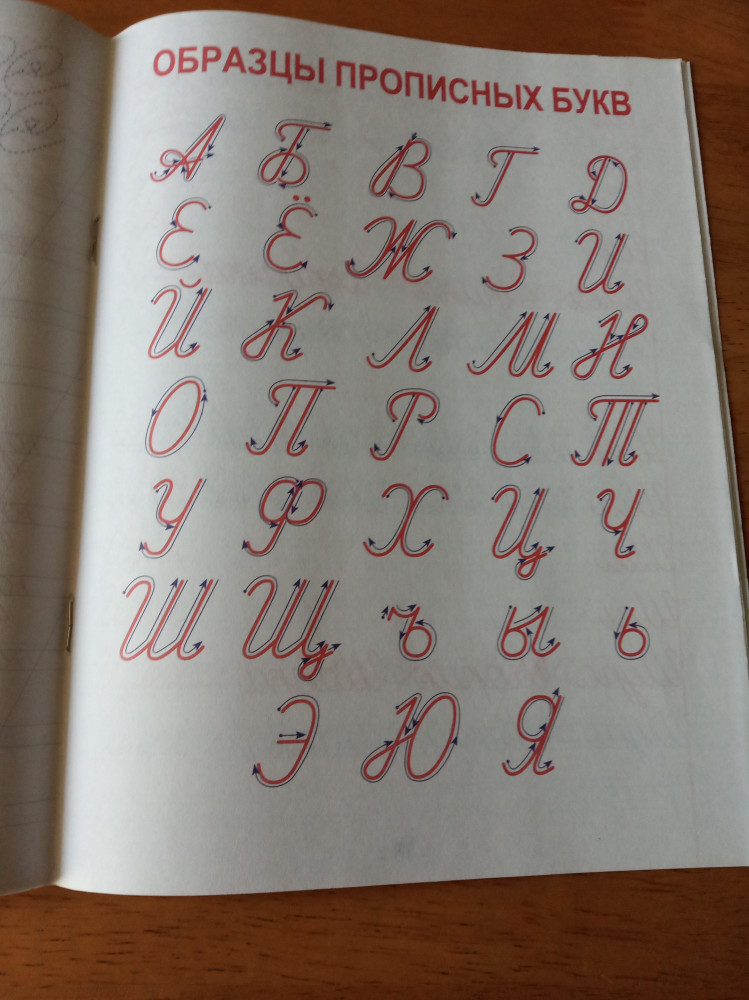 ОБРАЗЦЫ ПРОПИСНЫХ БУКВ
А Б В Г Д
Е Ё Ж З И
Й К Л М Н
О П Р С Т
У Ф Х Ц Ч
Ш Щ ъ ы ь
Э Ю Я